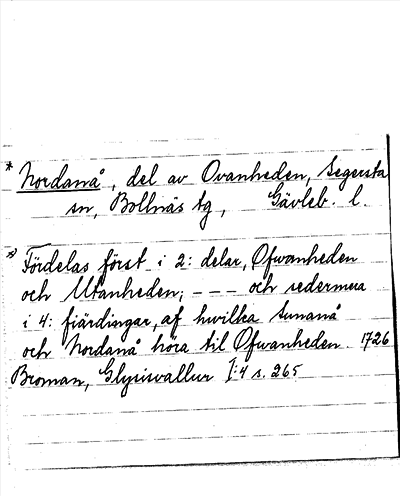 * Nordanå, del av Ovanheden, Segersta
sn, Bollnäs tg, Gävleb. l.
*) Fördelas först i 2: delar, Ofwanheden
och Utanheden; --- och sedermera
i 4: fjärdingar, af hwilka Sunanå
och Nordanå höra til Ofwanheden 1726
Broman, Glysisvallur I:4 s. 265